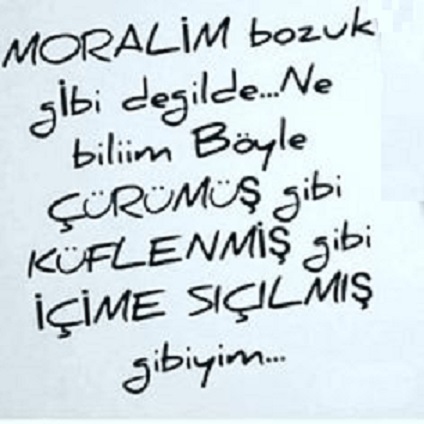 MORALİM bozuk
gİbi degilde...Ne
biliim Böyle
ÇÜRÜMÜŞ gibi
KÜFLENMİŞ gibi
İÇİME SIÇILMIŞ
gibiyim...